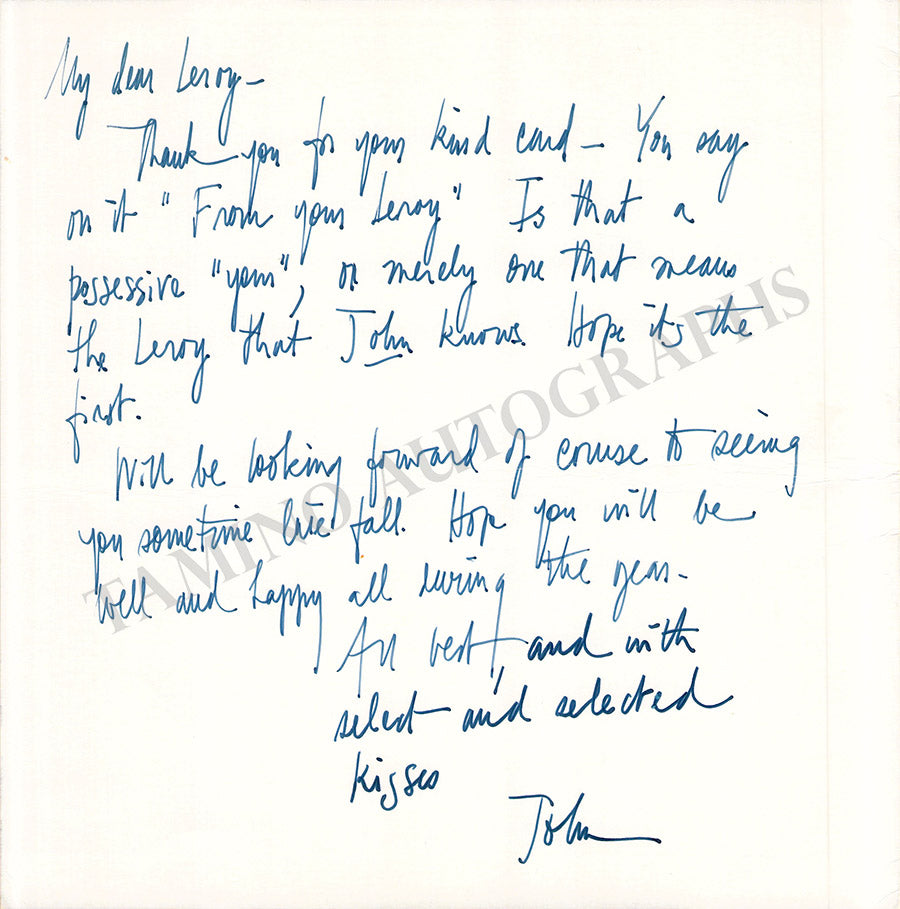 My dear Leroy—
Thank you for your kind card— You say
on it "From your Leroy" Is that a
possessive "your", or merely one that means
the Leroy that John knows. Hope it's the
first.
Will be looking forward of course to seeing
you sometime late fall. Hope you will be
well and happy all during the year—
All best, and with
select and selected
kisses
John
TAMINO AUTOGRAPHS